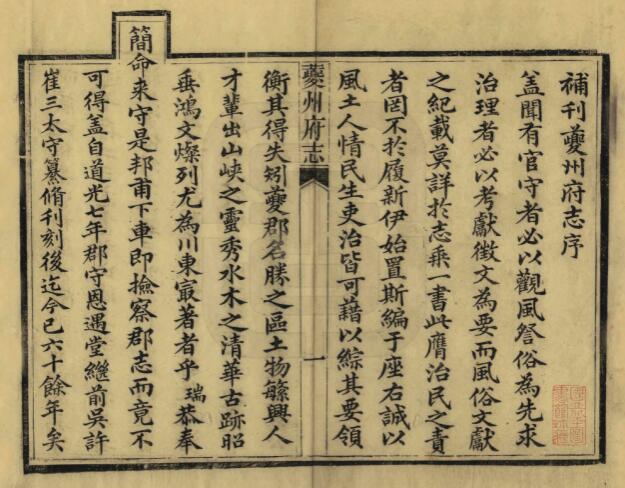 補刊夔州府志序
蓋聞有官守者必以觀風詧俗為先求
治理者必以考獻徵文為要而風俗文獻
之紀載莫詳於志乘一書此膺治民之責
者罔不於履新伊始置斯編于座右誠以
風土人情民生吏治皆可藉以綜其要領
夔州府志
一
衡其得失矧夔郡名勝之區土物緐興人
才輩出山峽之靈秀水木之清華古跡昭
垂鴻文燦列尤為川東冣著者乎瑞恭奉
簡命來守是邦甫下車即撿察郡志而竟不
可得蓋自道光七年郡守恩遇堂繼前吳許
崔三太守纂脩刊刻後迄今已六十餘年矣